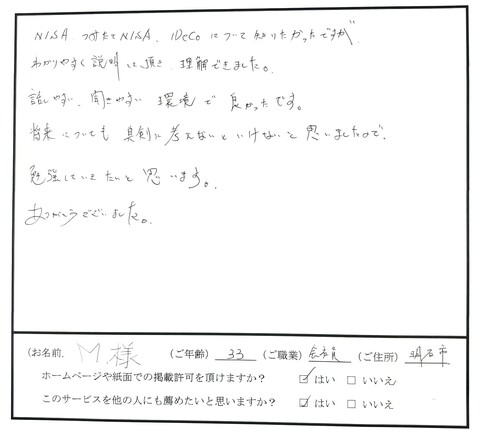 NISA、つみたてNISA、iDeCoについて知りたかったですが
わかりやすく説明して頂き、理解できました。
話しやすい、聞きやすい環境で良かったです。
将来についても真剣に考えないといけないと思いましたので、
勉強していきたいと思います。
ありがとうございました。
(お名前. M.様 (ご年齢) 33 (ご職業) 会社員 (ご住所) 明石市
ホームページや紙面での掲載許可を頂けますか? ☑はい □いいえ
このサービスを他の人にも薦めたいと思いますか? ☑はい □いいえ